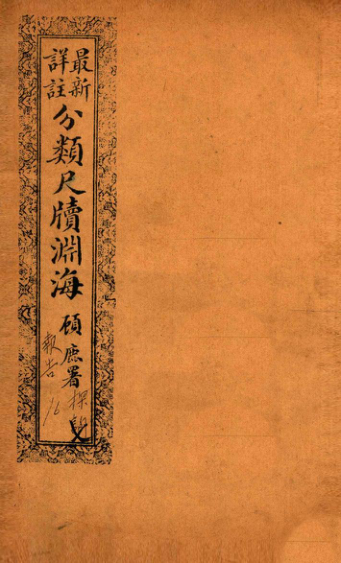 最新
詳註
分類尺牘淵海
頎廎署
報告
16
探